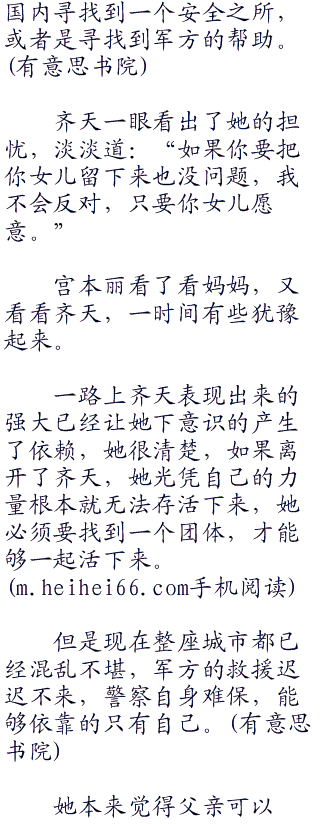 国内寻找到一个安全之所，
或者是寻找到军方的帮助。
(有意思书院)
齐天一眼看出了她的担
忧，淡淡道：“如果你要把
你女儿留下来也没问题，我
不会反对，只要你女儿愿
意。”
宫本丽看了看妈妈，又
看看齐天，一时间有些犹豫
起来。
一路上齐天表现出来的
强大已经让她下意识的产生
了依赖，她很清楚，如果离
开了齐天，她光凭自己的力
量根本就无法存活下来，她
必须要找到一个团体，才能
够一起活下来。
(m.heihei66.com手机阅读)
但是现在整座城市都已
经混乱不堪，军方的救援迟
迟不来，警察自身难保，能
够依靠的只有自己。(有意思
书院)
她本来觉得父亲可以